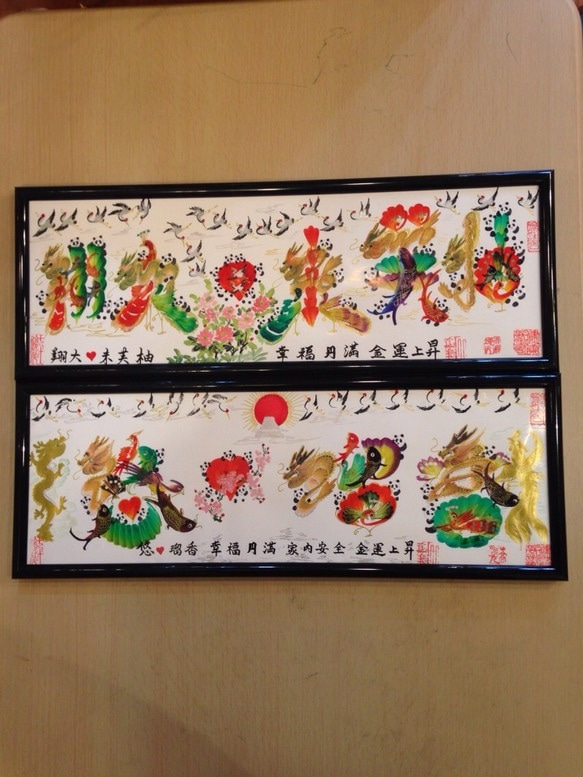 翔大♥朱芙柚 幸福円満 金運上昇
悠♥瑠香 幸福円満 家内安全 金運上昇